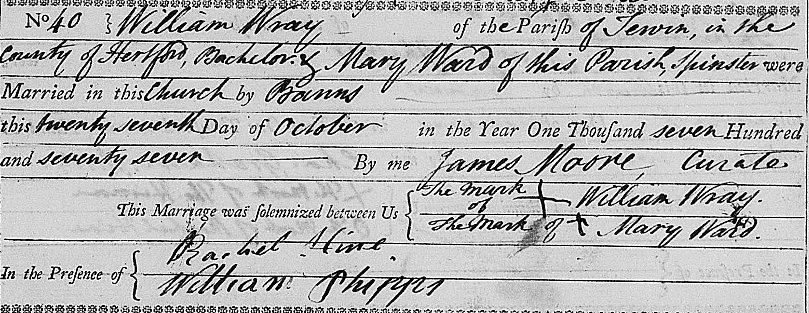 No 40 } William Wray of the Parish of Tewin, in the
County of Hertford, Bachelor & Mary Ward of this Parish, Spinster were
Married in this Church by Banns
this twenty seventh Day of October in the Year One Thousand seven Hundred
and seventy seven By me James Moore, Curate
This Marriage was solemnized between Us { The mark of + William Wray.
The Mark of + Mary Ward.
In the Presence of { Rachel
William Phipps